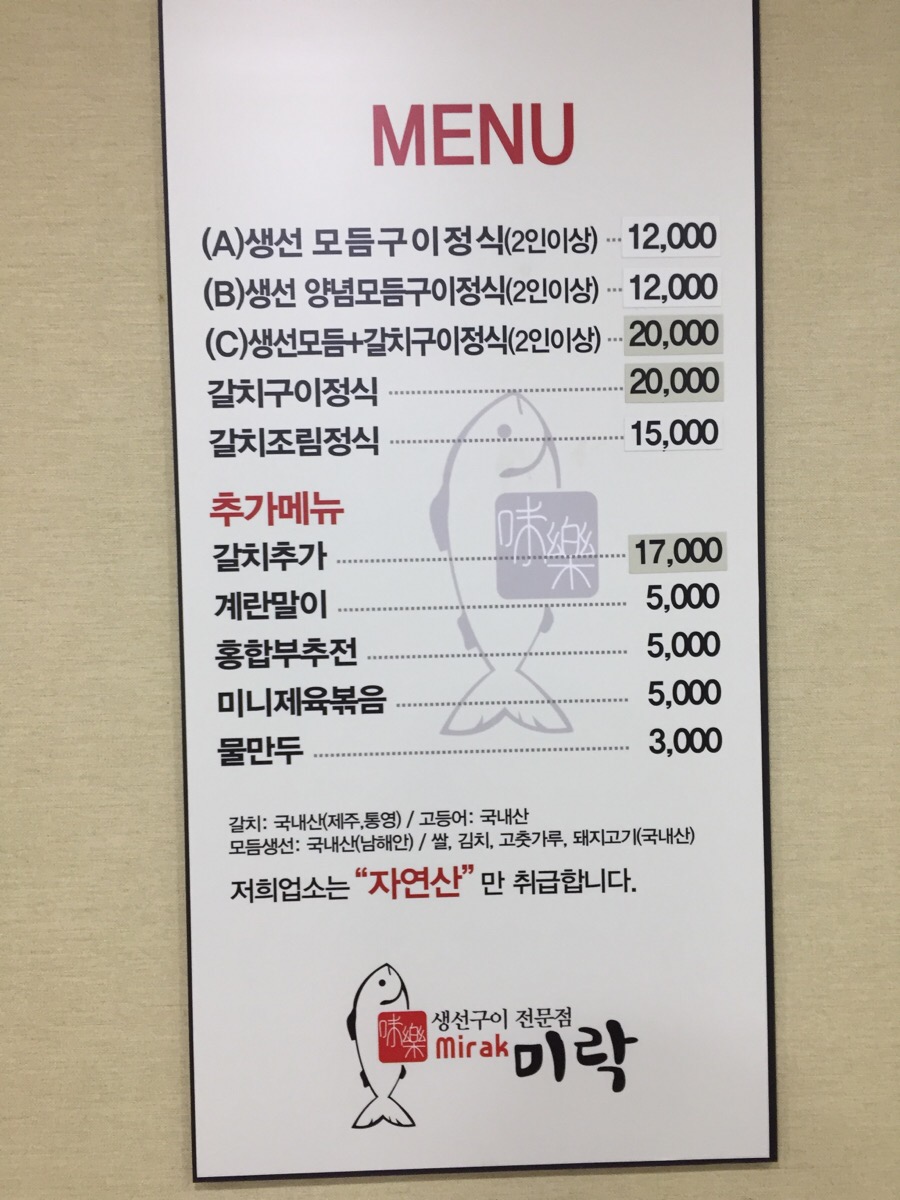 MENU
(A)생선 모듬구이정식(2인이상) 12,000
(B)생선 양념모듬구이정식(2인이상) 12,000
(C)생선모듬+갈치구이정식(2인이상) 20,000
갈치구이정식 20,000
갈치조림정식 15,000
추가메뉴
味樂
갈치추가 17,000
계란말이 5,000
홍합부추전 5,000
미니제육볶음 5,000
물만두 3,000
갈치: 국내산(제주,통영) / 고등어: 국내산
모듬생선: 국내산(남해안) / 쌀, 김치, 고춧가루, 돼지고기(국내산)
저희업소는 “자연산” 만 취급합니다.
味樂 생선구이 전문점
Mirak 미락